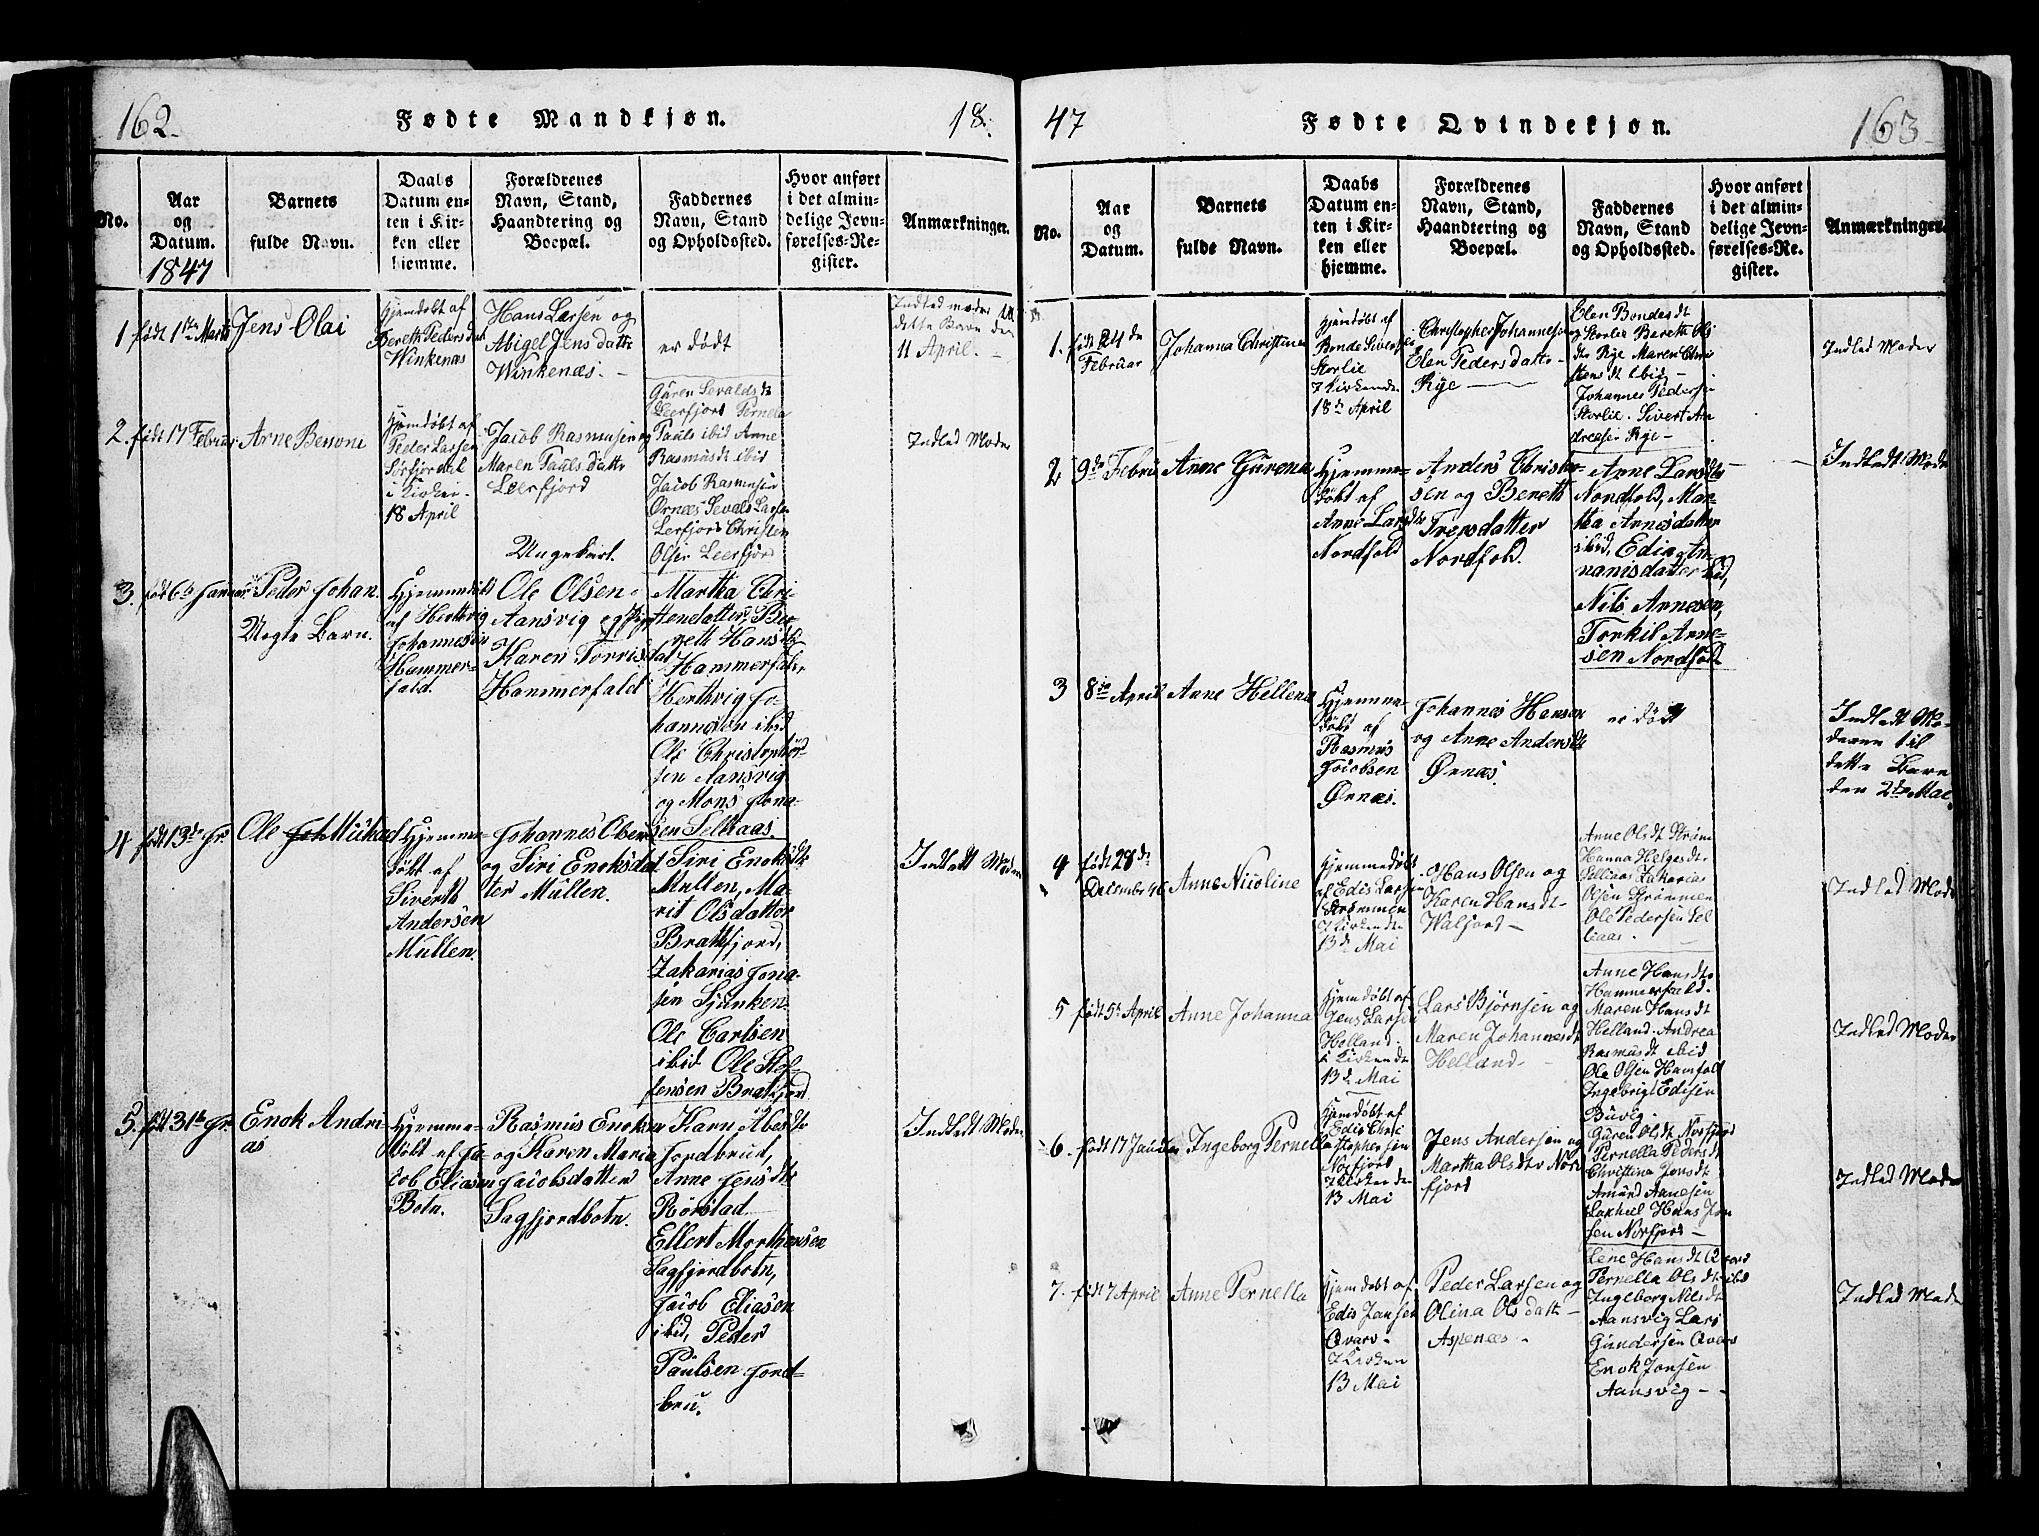 162.
Fødte Mandkjøn.
18.
No.
Aar og Datum.
1847
Barnets fulde Navn.
Daabs Datum enten i Kirken eller hjemme.
Forældrenes Navn, Stand, Haandtering og Boepæl.
Faddernes Navn, Stand og Opholdssted.
Hvor anført i det almindelige Jevnførelses-Register.
Anmærkninger.
1 født 1ste Marts
Jens Olai
Hjemdøbt af
Bereth Pedersdat
Winkenæs
Hans Larsen og
Abigel Jensdatt
Winkenæs. -
er død
Indled moder til
dette Barn den
11 April. -
2. født 17 Februar
Arne
Hjemdøbt af
Peder Larsen
i Kirken
18 April
Jacob Rasmusen og
Maren Paulsdatt
Leerfjord
Guren Sevaldsdt
Leerfjord Pernela
Pauls ibid Anne
Rasmusdt ibid
Jacob Rasmusen
Ørnæs Sevald Larsen
Lerfjord Christen
Olsen Leerfjord
Indled Moder
3. født 6te Januar
Peder Johan
Uægte Barn.
Hjemmedøbt
af Herthvig
Johannesen
Hammer-
fald.
Ungekarl.
Ole Olsen
Aansvig og Pige
Karen Torrisdat
Hammerfald
Martha Chri-
stensdatter, Be-
reth Hansdtr
Hammerfald,
Herthvig Jo-
hannesen ibid
Ole Christophers-
sen Aansvig
og Mons Jona-
sen Seljeaas.
4 født 13de Jr.
Ole Joh Mikal
Hjemme-
døbt af
Siverth
Andersen
Mullen.
Johannes Olsen
og Siri Enoksdat
ter Mullen.
Siri Enoksdtr
Mullen, Ma-
rit Olsdatter
Brathfjord,
Zakarias Jona-
sen Sjunken
Ole Carlsen
ibid Ole Stef-
fensen Bratfjord
Indledt Moder
5. født 31te Jr.
Enok Andri-
as
Hjemme-
døbt af Ja-
cob Eliasen
Botn.
Rasmus Enoksen
og Karen Maria
Jacobsdatter
Sagfjordbotn.
Karn Abesdtr
Jordbrud,
Anne Jensdtr
Rørstad
Ellert Morthensen
Sagfjordbotn,
Jacob Eliasen
ibid, Peder
Paulsen Jord-
bru.
Indledt Moder
47
Fødte Qvindekjøn.
163
No.
Aar og Datum.
Barnets fulde Navn.
Daabs Datum enten i Kirken eller hjemme.
Forældrenes Navn, Stand, Haandtering og Boepæl.
Faddernes Navn, Stand og Opholdssted.
Hvor anført i det almindelige Jevnførelses-Register.
Anmærkninger.
1. født 24de
Februar
Johanna Christine
Hjemdøbt af
Bonde Sivertsen
Storlie
I Kirken de
18de April
Christopher Johannesen
Elen Pedersdatter
Rye -
Elen Bondesdt
Storlie Bereth Ols
dtr Rye Maren Chri
stensdt ibid -
Johannes Pedersen
Storlie. Sivert An
dreasen Rye -
Indled Moder
2 9de Februar
Anne Gurena
Hjemme-
døbt af
Anne Larsdtr
Nordfold
Anders Christen-
sen og Bereth
Nordfold.
Anne Larsdtr
Nordfold, Mar-
tha Arnesdatter
ibid, Edia A-
nanisdatter ibid,
Nils Arnesen,
Torkil Arne-
sen Nordfold
Indledt Moder
3 8de April
Anne Hellena
Hjemme-
døbt af
Rasmus
Jacobsen
Ørnæs.
Johannes Hansen
og Anne Andersdtr
Ørnæs.
er død
Indledt Mo-
deren til
dette Barn
den 2den Mai.
4 født 28de
Decembr 46
Anne Nicoline
Hjemmedøbt
af Edis Larsen
Strømmen
I Kirken den
13de Mai
Hans Olsen og
Karen Hansdt
Waljord -
Anne Olsdt Strøm
Hanna Helgesdtr
Selliaas Zakarias
Olsen Strømmen
Ole Pedersen Sel
liaas.
Indled Moder
5 født 5te April
Anne Johanna
Hjemdøbt af
Jens Larsen
Helland.
i Kirken de
13de Mai
Lars Bjørnsen og
Maren Johannesdt
Helland -
Anne Hansdtr
Hammerfald.
Maren Hansdt
Helland. Andrea
Rasmusdt ibid
Ole Olsen Hamfald
Ingebrigt Edisen
Buvig.
Indled Moder
6. født 17 Januar
Ingeborg Pernella
Hjemdøbt af
Edis Chri
stophersen
Norfjord
I Kirken den
13 Mai
Jens Andersen og
Martha Olsdtr Nor
fjord
Guren Olsdt Norfjord
Pernella Pedersdt
Christina Jensdt
Amund Aanesen
Hans Jen
sen Norfjord -
Indled Moder
7. født 7 April
Anne Pernella
Hjemdøbt af
Edis Jansen
Qvarv -
I Kirken
13 Mai
Peder Larsen og
Olina Olsdatt -
Aspenæs -
Lene Hansdt
Pernella Olsdt ibid
Ingeborg Nilsdt
Aansvig Lars
Gundersen Qvarv
Enok Jonsen
Aansvig -
Indled Moder